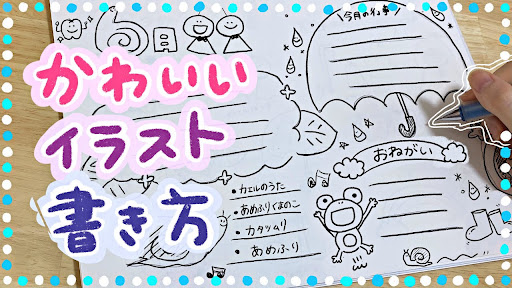 6月
今月の行事
かわいい
イラスト
書き方
おねがい
・カエルのうた
・あめふりくまのこ
・カタツムリ
・あめふり